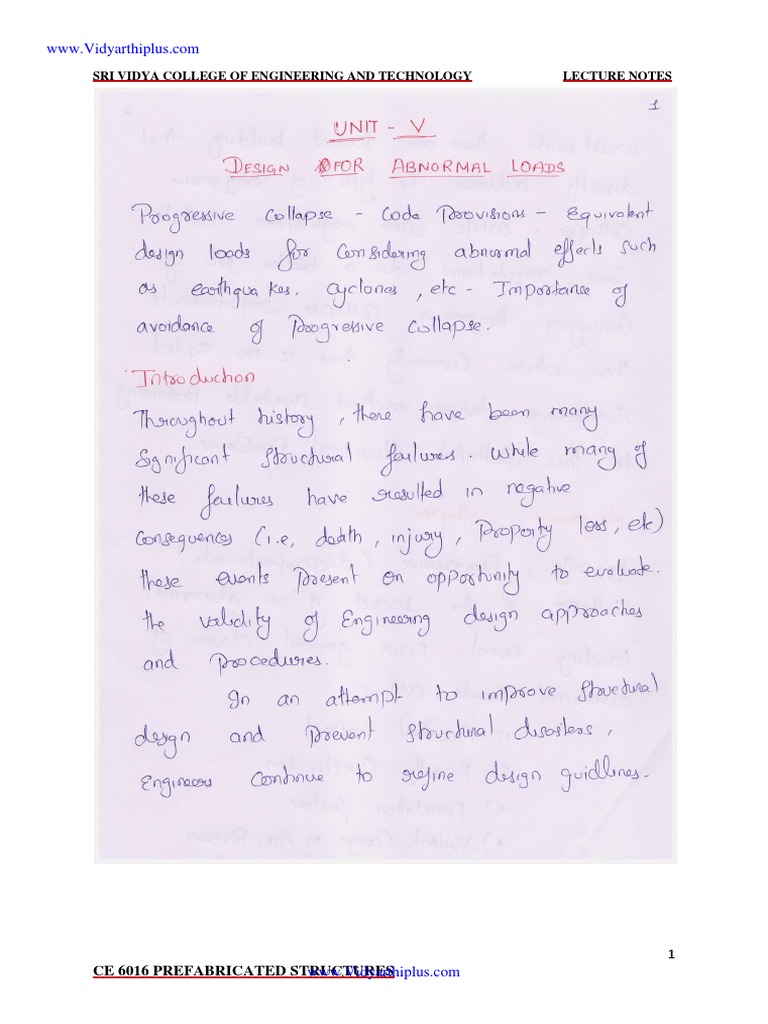 www.Vidyarthiplus.com
SRI VIDYA COLLEGE OF ENGINEERING AND TECHNOLOGY LECTURE NOTES
1
UNIT - V
DESIGN FOR ABNORMAL LOADS
Progressive collapse - Code Provisions - Equivalent
design loads for considering abnormal effects such
as earthquakes, cyclones, etc - Importance of
avoidance of Progressive collapse.
Introduction
Throughout history, there have been many
significant structural failures. While many of
these failures have resulted in negative
consequences (i.e, death, injury, Property loss, etc)
these events Present an opportunity to evaluate.
the validity of Engineering design approaches
and Procedures.
In an attempt to improve structural
design and prevent structural disasters,
Engineers continue to refine design guidlines.
1
CE 6016 PREFABRICATED STRUCTURES
www.Vidyarthiplus.com